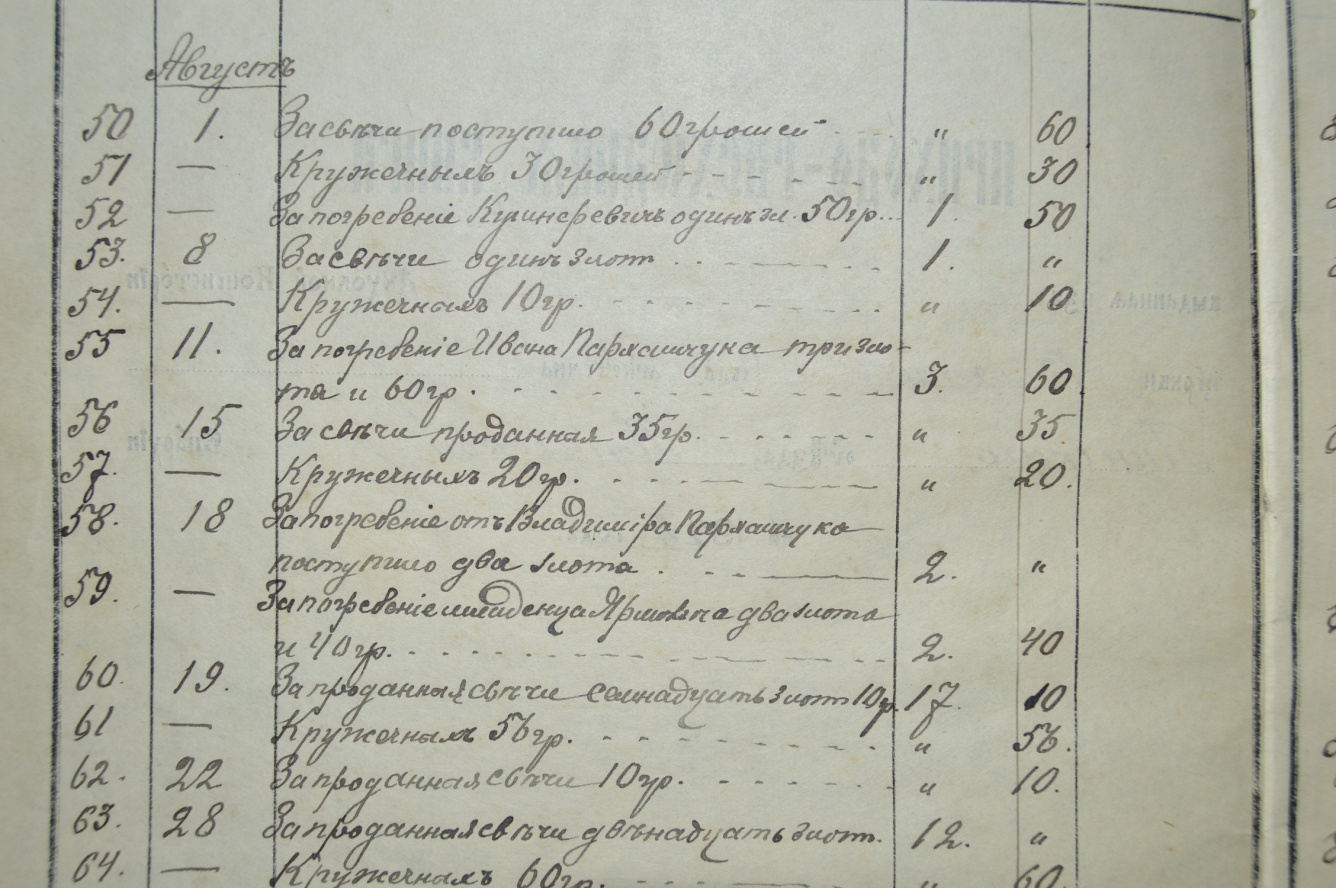 Августъ
50 1. За свѣчи поступило 60 грошей " 60
51 — Кружечнымъ 30 грошей " 30
52 — За погребеніе одинъ зл. 50 гр. 1. 50
53. 8 За свѣчи одинъ злот 1. "
54. — Кружечнымъ 10 гр. " 10
55 11. За погребеніе Ивана Пармашчука три зло-
та и 60 гр. 3. 60
56 15 За свѣчи проданная 35 гр. " 35
57. — Кружечнымъ 20 гр. " 20.
58. 18 За погребеніе отъ Владиміра Пармашчука
поступило два злота 2. "
59. — За погребеніе младенца два злота
и 40 гр. 2. 40
60. 19. За проданная свѣчи семнадцать злот 10 гр. 17. 10
61 — Кружечнымъ 56 гр. " 56.
62. 22 За проданная свѣчи 10 гр. " 10.
63. 28 За проданная свѣчи двѣнадцать злот. 12. "
64. — Кружечнымъ 60 гр. " 60.